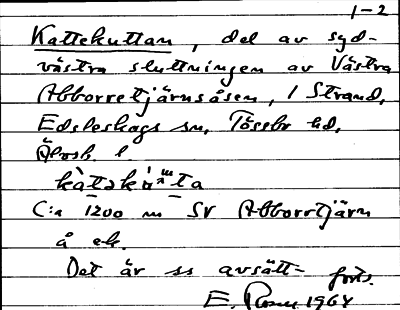 1-2
Kattekuttan, del av syd-
västra sluttningen av Västra
Abborretjärnsåsen, 1 Strand,
Edsleskogs sn, Tössbo hd,
Älvsb. l.
C:a 1200 m SV Abborrtjärn
å ek.
Det är ss avsätt- forts.
E. 1964